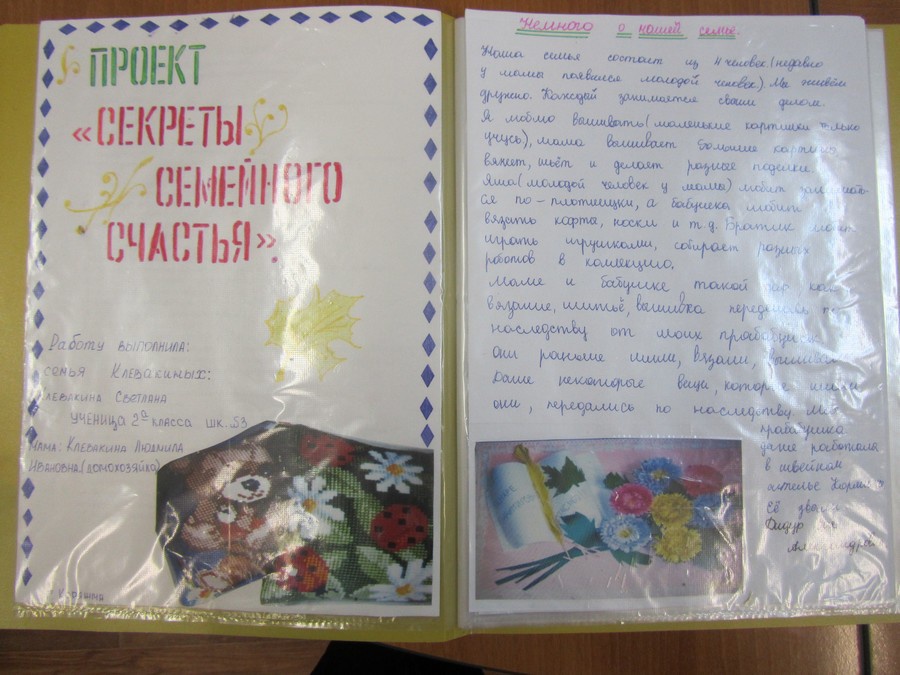 ПРОЕКТ
«СЕКРЕТЫ
СЕМЕЙНОГО
СЧАСТЬЯ».
Работу выполнила:
семья Клевакиных:
Клевакина Светлана
ученица 2а класса шк. 53
Мама: Клевакина Людмила
Ивановна (домохозяйка)
Немного о нашей семье.
Наша семья состоит из 4 человек (недавно
у мамы появился молодой человек). Мы живём
дружно. Каждый занимается своим делом.
Я люблю вышивать (маленькие картинки только
учусь), мама вышивает большие картины,
вяжет, шьёт и делает разные поделки.
Яша (молодой человек у мамы) любит занимать-
ся по-плотницки, а бабушка любит
вязать кофты, носки и т.д. Братик любит
играть игрушками, собирает разных
роботов в коллекцию.
Маме и бабушке такой дар как
вязание, шитьё, вышивка передались по
наследству от моих прабабушек
они раньше шили, вязали, вышивали
Даже некоторые вещи, которые шили
они, передались по наследству. Моя
прабабушка
даже работала
в швейном
ателье
Её звали